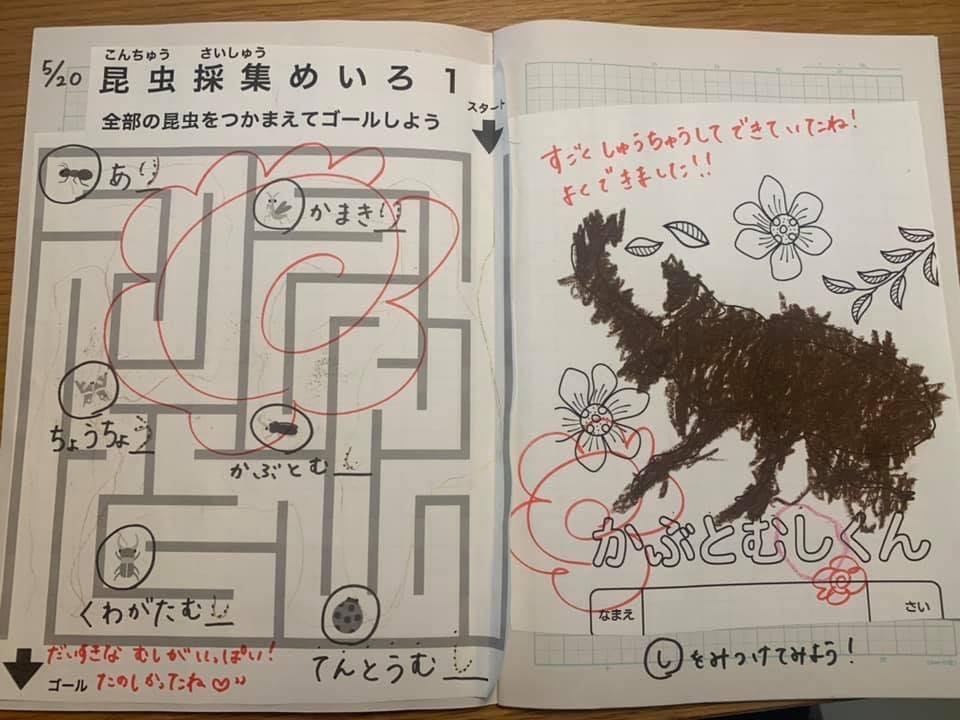 5/20
こんちゅう さいしゅう
昆虫採集めいろ1
全部の昆虫をつかまえてゴールしよう
スタート
あり
かまきり
ちょうちょう
かぶとむし
くわがたむし
てんとうむし
だいすきな むしがいっぱい!
ゴール たのしかったね♡
すごく しゅうちゅうして できていたね!
よくできました!!
かぶとむしくん
なまえ さい
しをみつけてみよう!